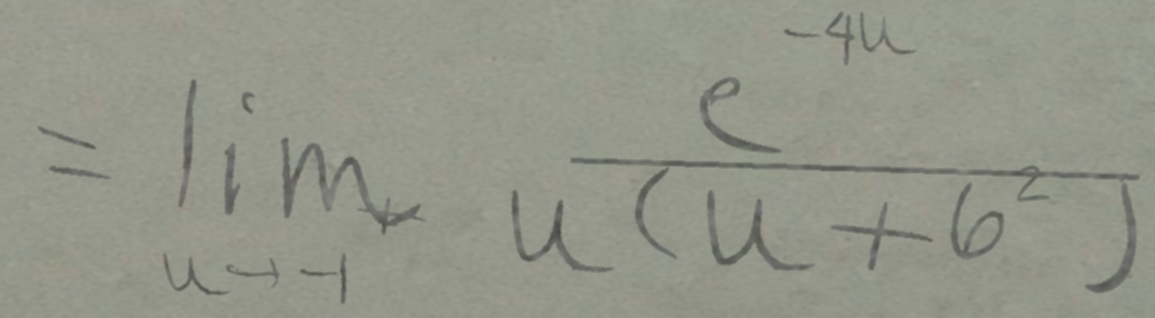 = \lim_{u \to -1} \frac{e^{-4u}}{u(u+6^2)}